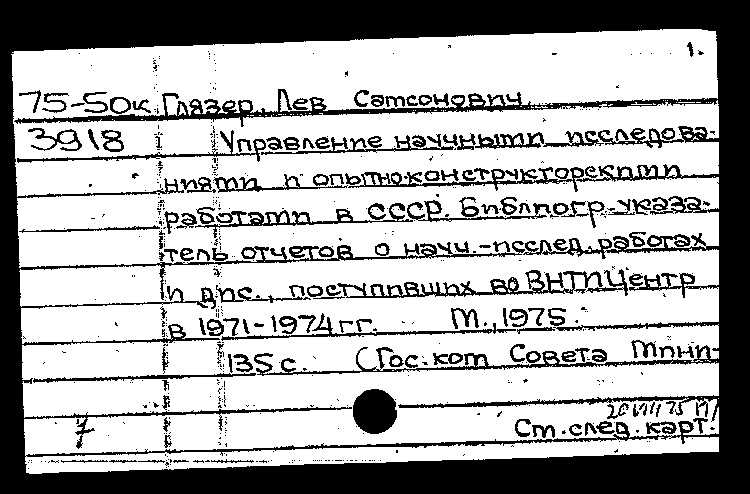 1.
75-50к Глязер, Лев Самсонович
3918 Управление научными исследова-
ниями и опытно-конструкторскими
работами в СССР. Библиогр. указа-
тель отчетов о науч.-исслед. работах
и дис., поступивших во ВНТИЦентр
в 1971-1974 гг. М., 1975.
135 с. (Гос. ком Совета Мини-
20 VIII 75
7 См. след. карт.